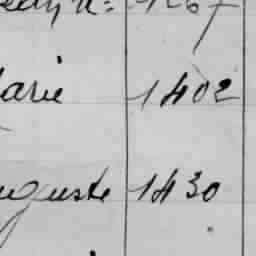 1267
arie 1402
uguste 1430